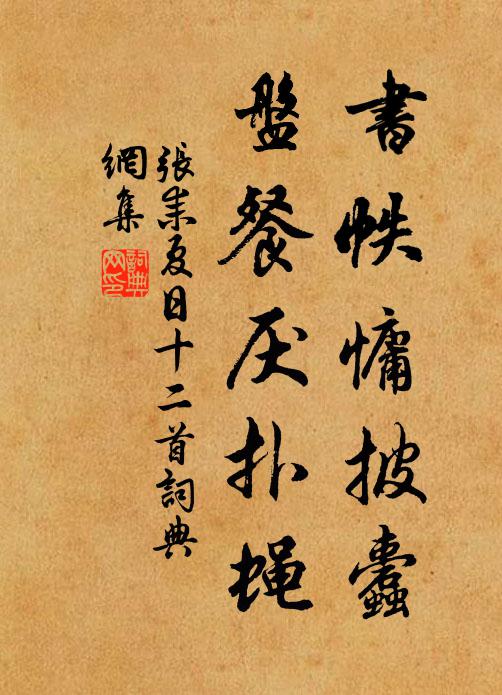 書帙慵披蠹
盤餐厌扑蝇
張耒夏日十二首詞典
網集
詞典
网印